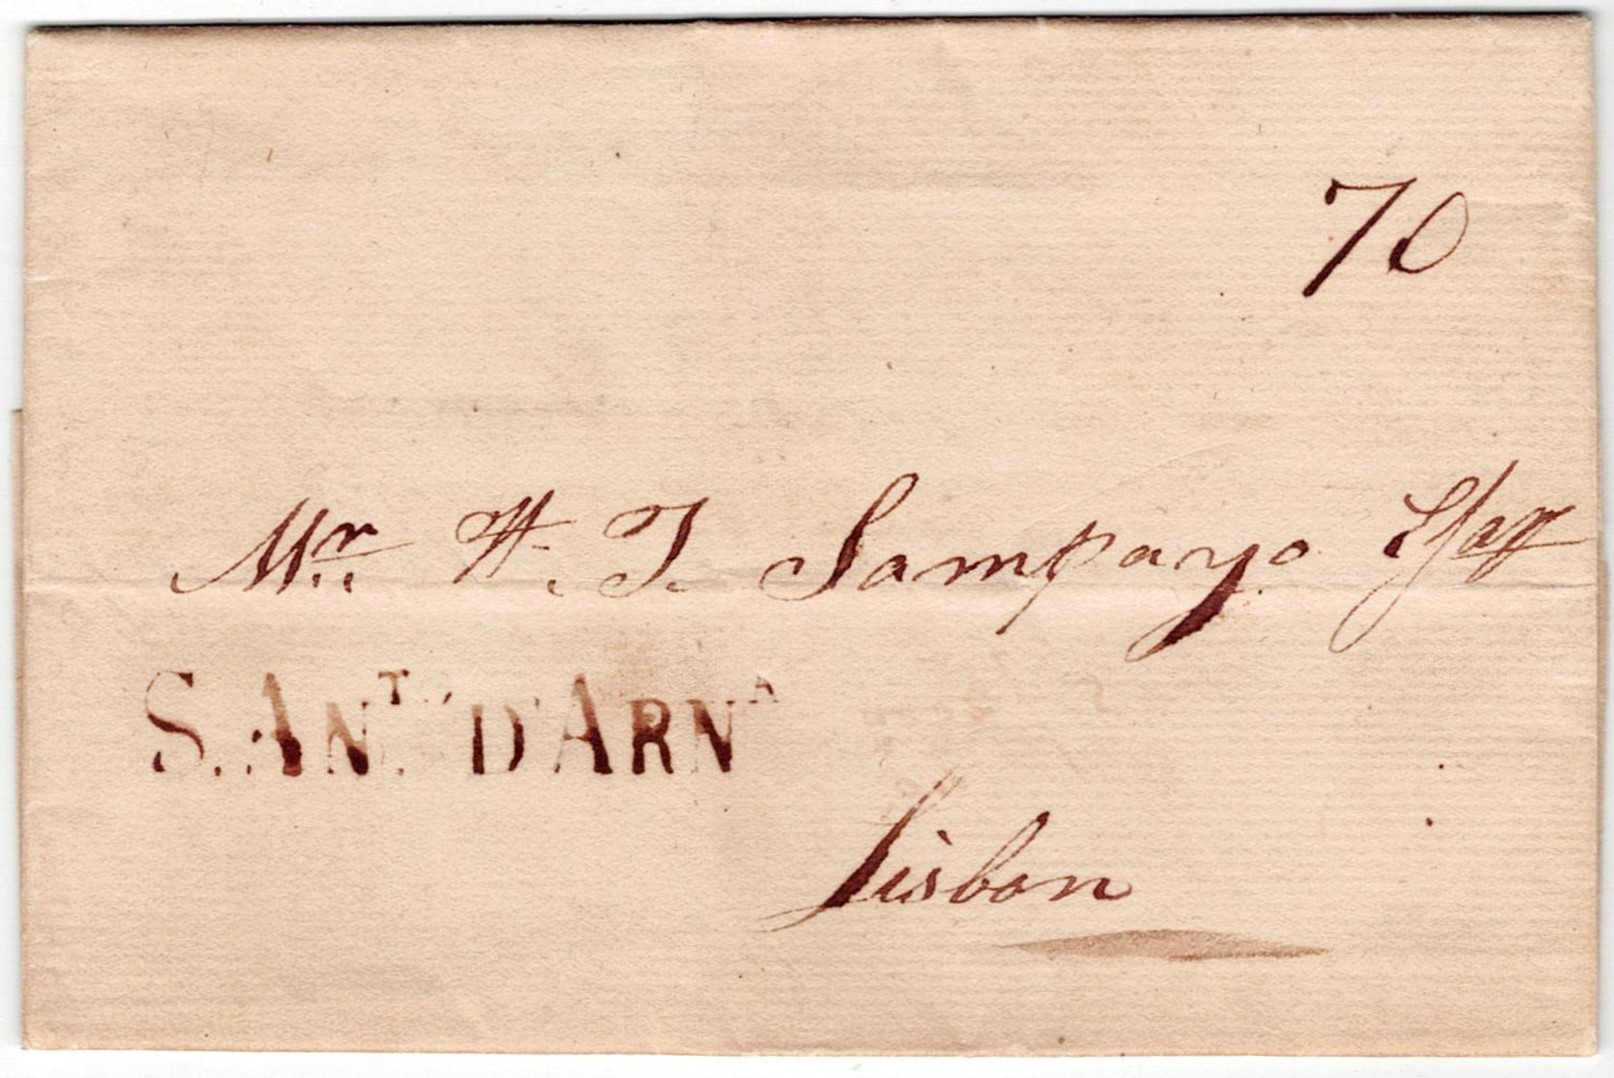 70
Mr. H. T. Sampayo Esqr
S. ANT. D'ARNA
Lisbon